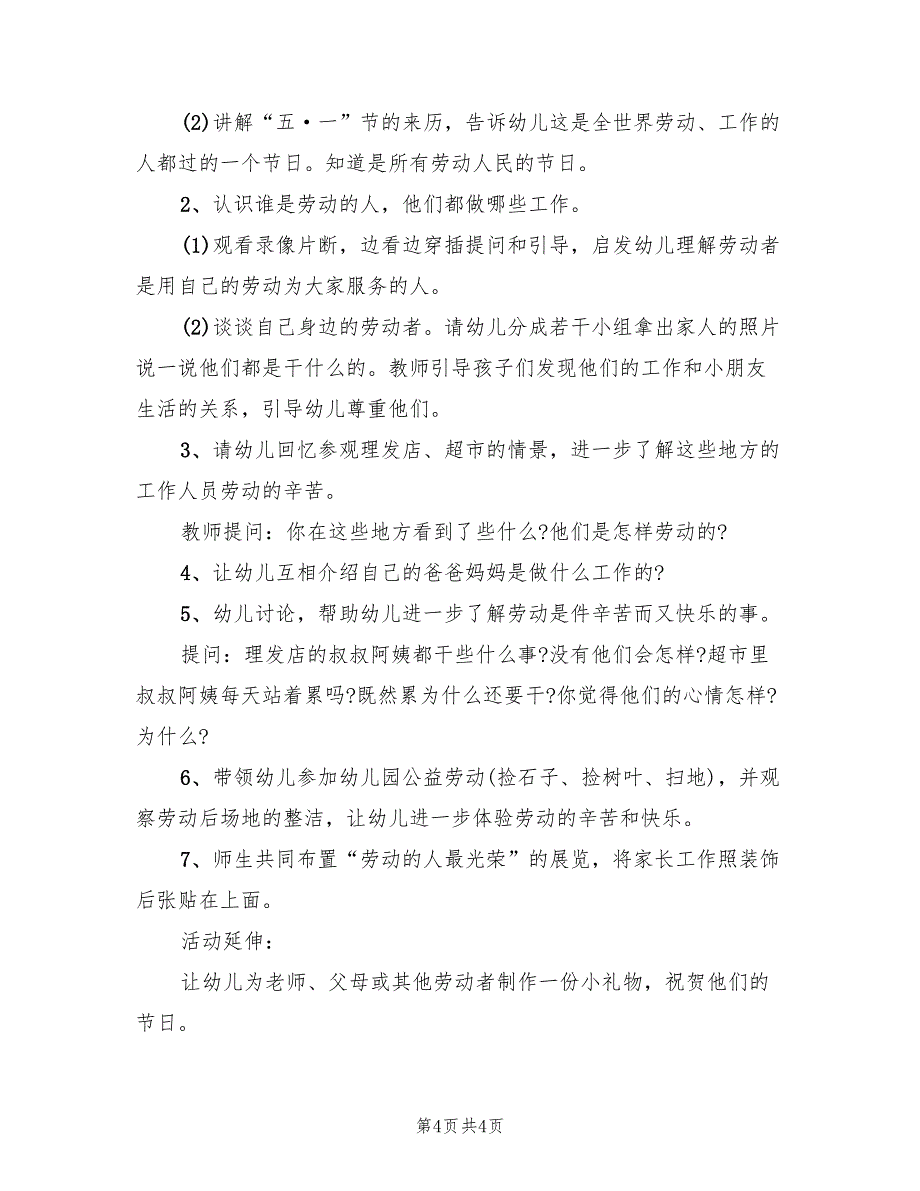 (2)讲解“五·一”节的来历，告诉幼儿这是全世界劳动、工作的
人都过的一个节日。知道是所有劳动人民的节日。
2、认识谁是劳动的人，他们都做哪些工作。
(1)观看录像片断，边看边穿插提问和引导，启发幼儿理解劳动者
是用自己的劳动为大家服务的人。
(2)谈谈自己身边的劳动者。请幼儿分成若干小组拿出家人的照片
说一说他们都是干什么的。教师引导孩子们发现他们的工作和小朋友
生活的关系，引导幼儿尊重他们。
3、请幼儿回忆参观理发店、超市的情景，进一步了解这些地方的
工作人员劳动的辛苦。
教师提问：你在这些地方看到了些什么?他们是怎样劳动的?
4、让幼儿互相介绍自己的爸爸妈妈是做什么工作的?
5、幼儿讨论，帮助幼儿进一步了解劳动是件辛苦而又快乐的事。
提问：理发店的叔叔阿姨都干些什么事?没有他们会怎样?超市里
叔叔阿姨每天站着累吗?既然累为什么还要干?你觉得他们的心情怎样?
为什么?
6、带领幼儿参加幼儿园公益劳动(捡石子、捡树叶、扫地)，并观
察劳动后场地的整洁，让幼儿进一步体验劳动的辛苦和快乐。
7、师生共同布置“劳动的人最光荣”的展览，将家长工作照装饰
后张贴在上面。
活动延伸：
让幼儿为老师、父母或其他劳动者制作一份小礼物，祝贺他们的
节日。
第4页共4页